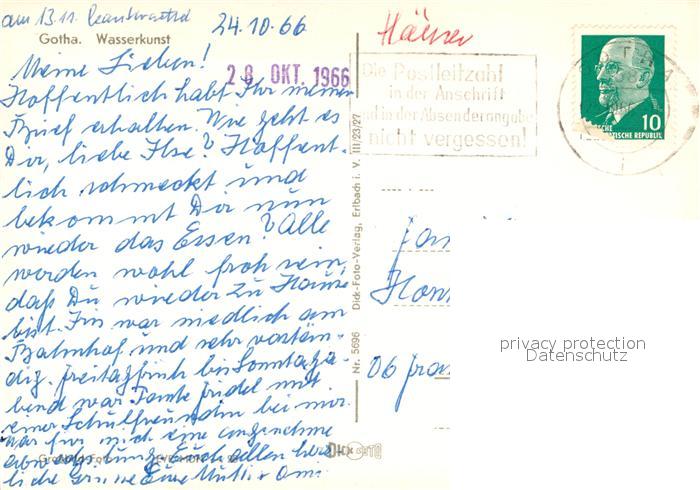 am 13.11. beantwortet
24.10.66
Gotha. Wasserkunst
Meine Lieben!
28. OKT. 1966
Hoffentlich habt Ihr meinen
Brief erhalten. Wie geht es
Dir, liebe Ilse? Hoffent-
lich schmeckt und
bekommt Dir nun
wieder das Essen? Alle
werden wohl froh sein,
daß Du wieder zu Hause
bist. war niedlich am
Bahnhof und sehr verstän-
dig. Freitagfrüh bis Sonntaga-
bend war Tante Friedel mit
einer Schulfreundin bei mir.
War für mich eine angenehme
Abwechslung. Euch allen herz-
liche Grüße Eure Mutti + Omi
Nr. 5696 Dick-Foto-Verlag, Erlbach i. V. III/23/27
Häuser
Die Postleitzahl
in der Anschrift
und in der Absenderangabe
nicht vergessen!
10
DEUTSCHE
DEMOKRATISCHE REPUBLIK
06
privacy protection
Datenschutz